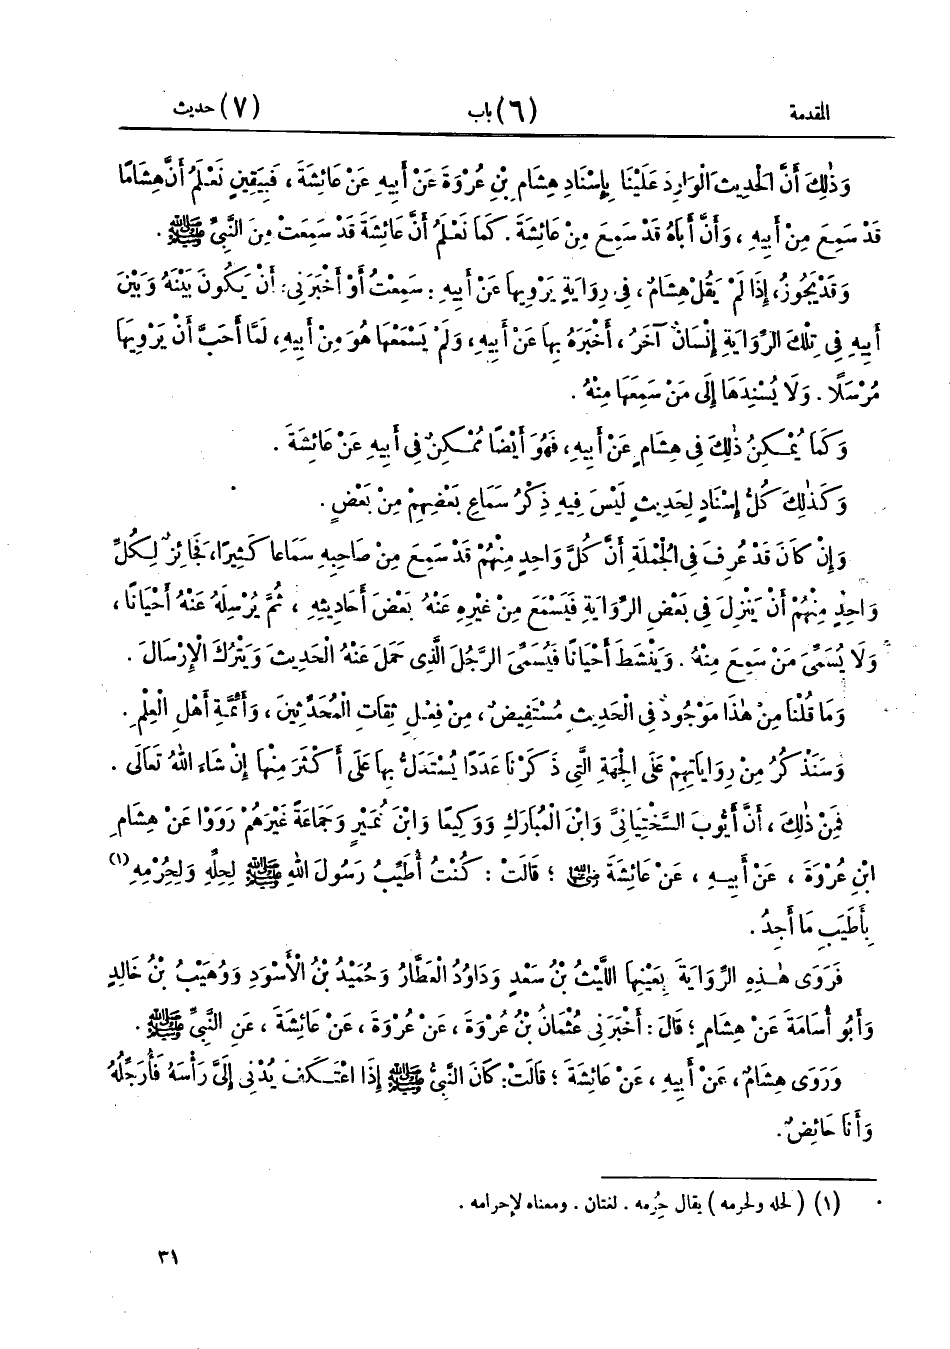 المقدمة (٦) باب (٧) حديث
وَذٰلِكَ أَنَّ الْحَدِيثَ الْوَارِدَ عَلَيْنَا بِإِسْنَادِ هِشَامِ بْنِ عُرْوَةَ عَنْ أَبِيهِ عَنْ عَائِشَةَ ، فَبِيَقِينٍ نَعْلَمُ أَنَّ هِشَامًا
قَدْ سَمِعَ مِنْ أَبِيهِ ، وَأَنَّ أَبَاهُ قَدْ سَمِعَ مِنْ عَائِشَةَ . كَمَا نَعْلَمُ أَنَّ عَائِشَةَ قَدْ سَمِعَتْ مِنَ النَّبِيِّ ﷺ .
وَقَدْ يَجُوزُ، إِذَا لَمْ يَقُلْ هِشَامٌ، فِي رِوَايَةٍ يَرْوِيهَا عَنْ أَبِيهِ : سَمِعْتُ أَوْ أَخْبَرَنِي: أَنْ يَكُونَ بَيْنَهُ وَبَيْنَ
أَبِيهِ فِي تِلْكَ الرِّوَايَةِ إِنْسَانٌ آخَرُ ، أَخْبَرَهُ بِهَا عَنْ أَبِيهِ، وَلَمْ يَسْمَعْهَا هُوَ مِنْ أَبِيهِ، لَمَّا أَحَبَّ أَنْ يَرْوِيَهَا
مُرْسَلًا . وَلَا يُسْنِدَهَا إِلَى مَنْ سَمِعَهَا مِنْهُ .
وَكَمَا يُمْكِنُ ذٰلِكَ فِي هِشَامٍ عَنْ أَبِيهِ، فَهُوَ أَيْضًا مُمْكِنٌ فِي أَبِيهِ عَنْ عَائِشَةَ .
وَكَذٰلِكَ كُلُّ إِسْنَادٍ لِحَدِيثٍ لَيْسَ فِيهِ ذِكْرُ سَمَاعِ بَعْضِهِمْ مِنْ بَعْضٍ .
وَإِنْ كَانَ قَدْ عُرِفَ فِي الْجُمْلَةِ أَنَّ كُلَّ وَاحِدٍ مِنْهُمْ قَدْ سَمِعَ مِنْ صَاحِبِهِ سَمَاعًا كَثِيرًا، فَجَائِزٌ لِكُلِّ
وَاحِدٍ مِنْهُمْ أَنْ يَنْزِلَ فِي بَعْضِ الرِّوَايَةِ فَيَسْمَعَ مِنْ غَيْرِهِ عَنْهُ بَعْضَ أَحَادِيثِهِ ، ثُمَّ يُرْسِلَهُ عَنْهُ أَحْيَانًا ،
وَلَا يُسَمِّيَ مَنْ سَمِعَ مِنْهُ . وَيَنْشَطَ أَحْيَانًا فَيُسَمِّيَ الرَّجُلَ الَّذِي حَمَلَ عَنْهُ الْحَدِيثَ وَيَتْرُكَ الْإِرْسَالَ .
وَمَا قُلْنَا مِنْ هٰذَا مَوْجُودٌ فِي الْحَدِيثِ مُسْتَفِيضٌ ، مِنْ فِعْلِ ثِقَاتِ الْمُحَدِّثِينَ ، وَأَئِمَّةِ أَهْلِ الْعِلْمِ .
وَسَنَذْكُرُ مِنْ رِوَايَاتِهِمْ عَلَى الْجِهَةِ الَّتِي ذَكَرْنَا عَدَدًا يُسْتَدَلُّ بِهَا عَلَى أَكْثَرَ مِنْهَا إِنْ شَاءَ اللهُ تَعَالَى .
فَمِنْ ذٰلِكَ ، أَنَّ أَيُّوبَ السَّخْتِيَانِيَّ وَابْنَ الْمُبَارَكِ وَوَكِيعًا وَابْنَ نُمَيْرٍ وَجَمَاعَةً غَيْرَهُمْ رَوَوْا عَنْ هِشَامِ
ابْنِ عُرْوَةَ ، عَنْ أَبِيهِ ، عَنْ عَائِشَةَ رضي الله عنها ؛ قَالَتْ : كُنْتُ أُطَيِّبُ رَسُولَ اللهِ ﷺ لِحِلِّهِ وَلِحُرْمِهِ (١)
بِأَطْيَبِ مَا أَجِدُ .
فَرَوَى هٰذِهِ الرِّوَايَةَ بِعَيْنِهَا اللَّيْثُ بْنُ سَعْدٍ وَدَاوُدُ الْعَطَّارُ وَحُمَيْدُ بْنُ الْأَسْوَدِ وَوُهَيْبُ بْنُ خَالِدٍ
وَأَبُو أُسَامَةَ عَنْ هِشَامٍ ؛ قَالَ : أَخْبَرَنِي عُثْمَانُ بْنُ عُرْوَةَ ، عَنْ عُرْوَةَ ، عَنْ عَائِشَةَ ، عَنِ النَّبِيِّ ﷺ .
وَرَوَى هِشَامٌ، عَنْ أَبِيهِ ، عَنْ عَائِشَةَ ؛ قَالَتْ: كَانَ النَّبِيُّ ﷺ إِذَا اعْتَكَفَ يُدْنِي إِلَيَّ رَأْسَهُ فَأُرَجِّلُهُ
وَأَنَا حَائِضٌ .
(١) ( لحله ولحرمه ) يقال حُرمه . لغتان . ومعناه لإحرامه .
٣١